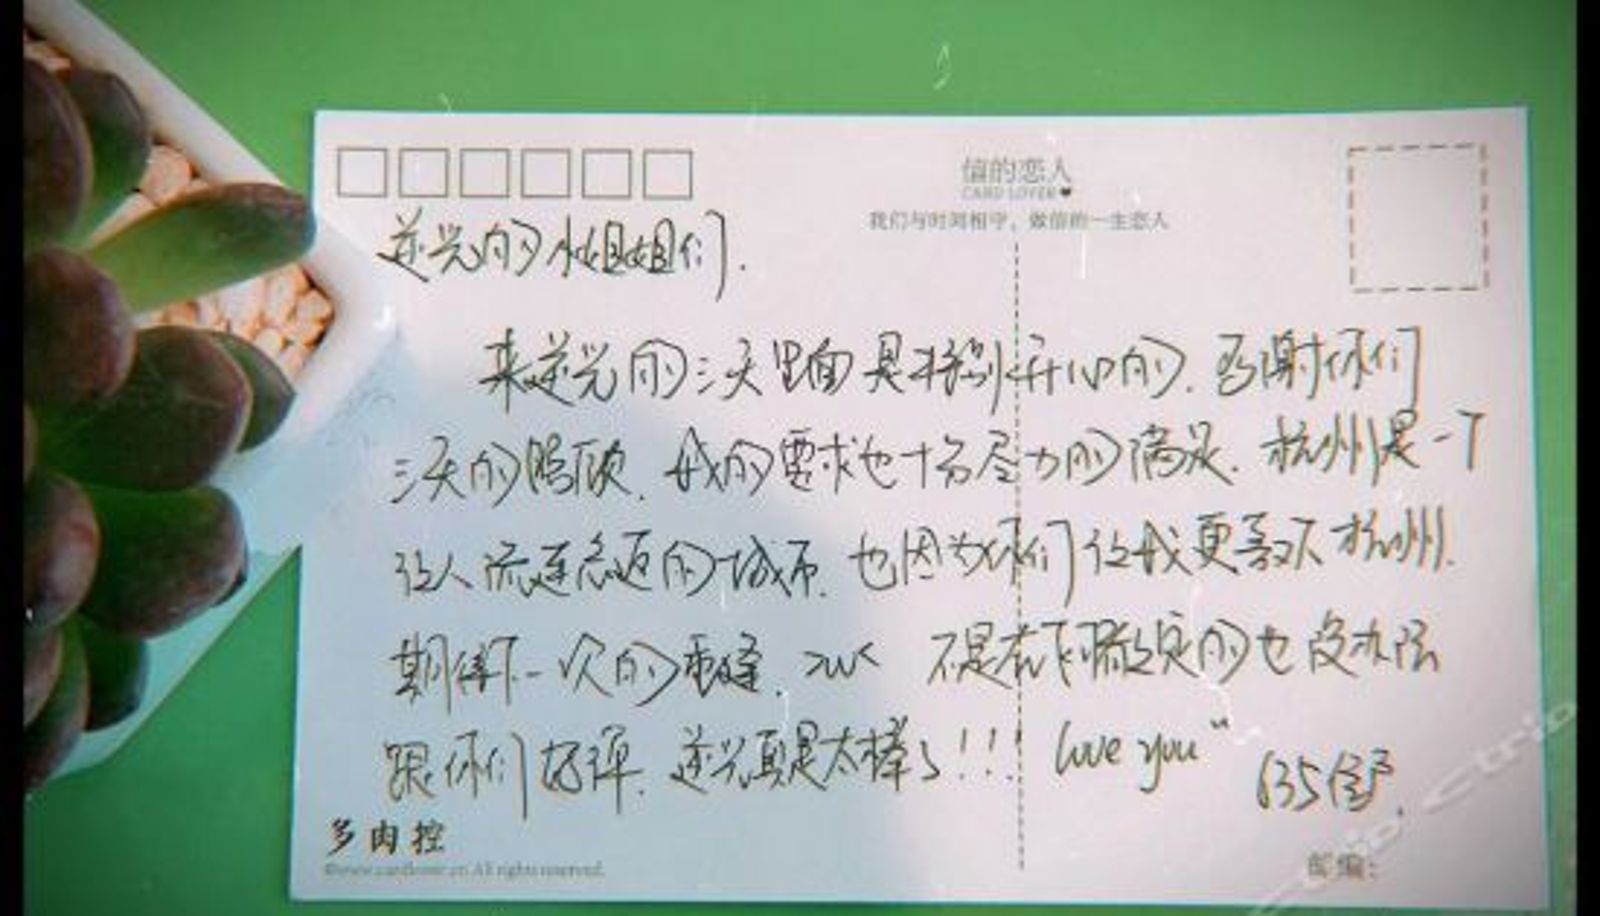 值的恋人
CARD LOVER
我们与时间相守，做值的一生恋人
逆光的小姐姐们.
来逆光的三天里面是特别开心的. 感谢你们
三天的照顾. 我的要求也十分尽力的满足. 杭州是一个
让人流连忘返的城市. 也因为你们让我更喜欢杭州.
期待下一次的重逢. 不是在飞猪定的也没办法
跟你们好评. 逆光真是太棒了!!! love you"
多肉控
©www.cardlover.cn All rights reserved.
邮编：
ctrip